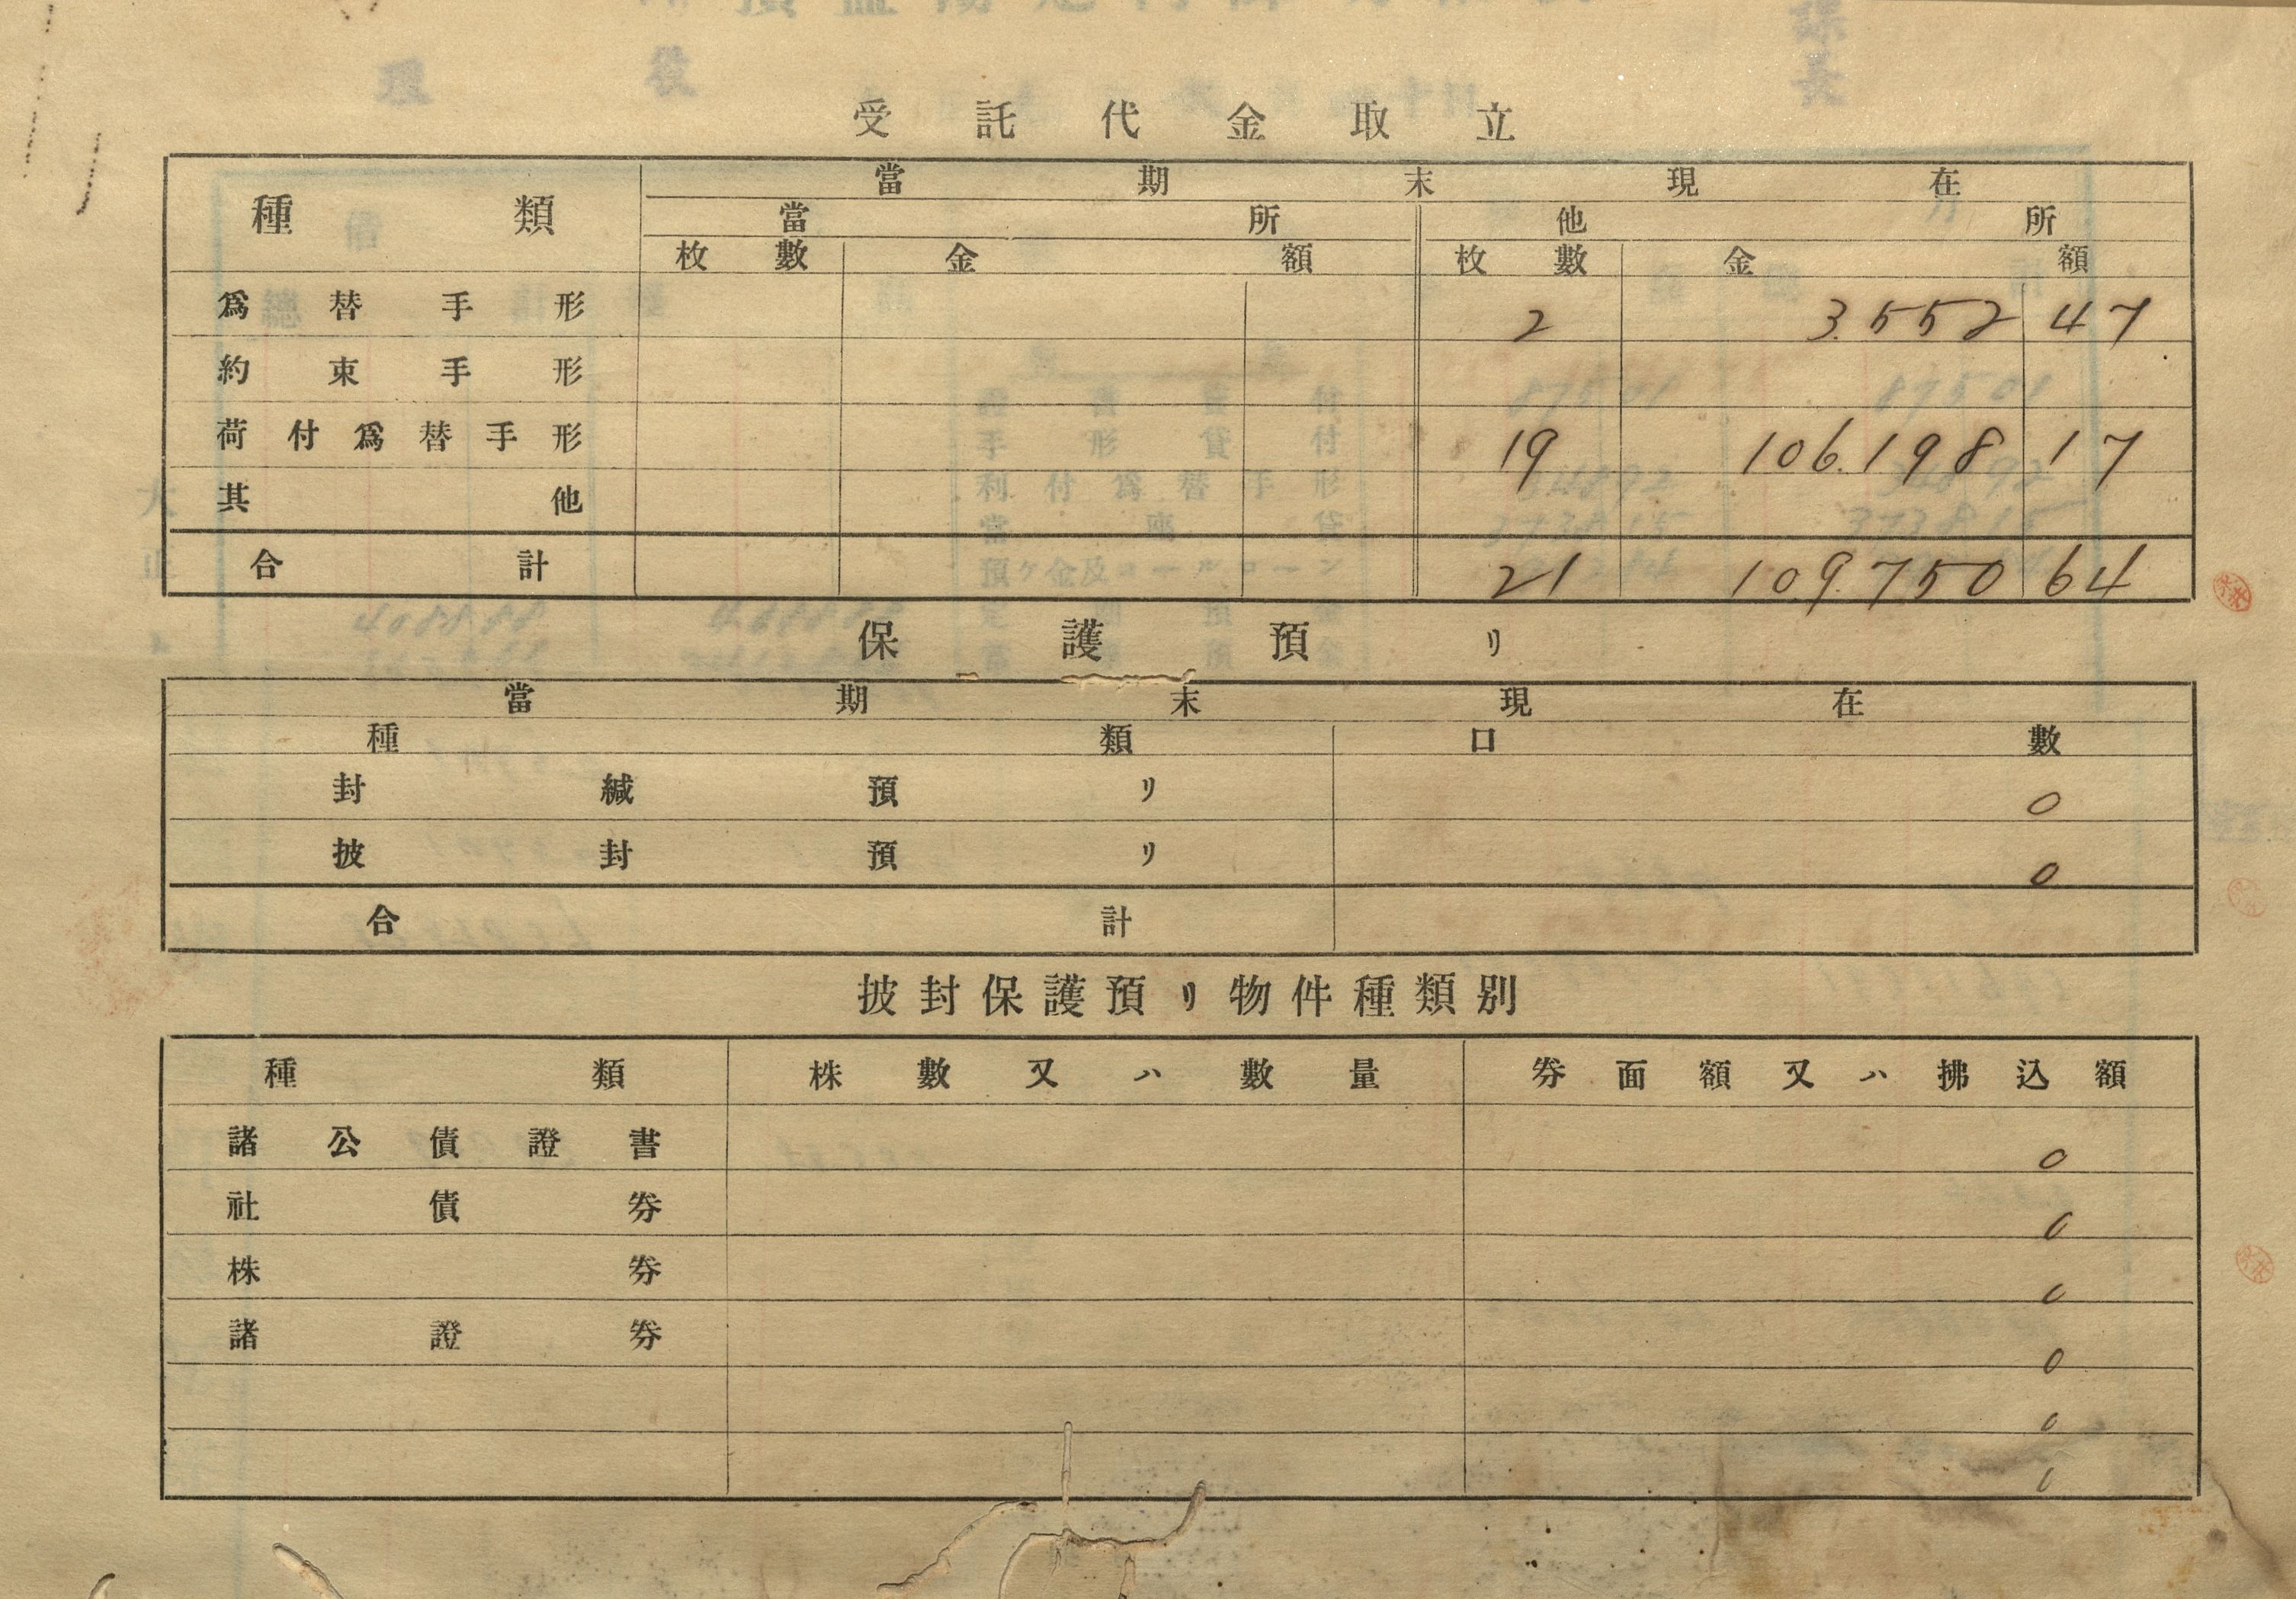 受託代金取立
種類 當期末現在
當所 他所
枚數 金額 枚數 金額
爲替手形 2 3.552 47
約束手形
荷付爲替手形 19 106.198 17
其他
合計 21 109.750 64
保護預リ
當期末現在
種類 口數
封緘預リ 0
披封預リ 0
合計
披封保護預リ物件種類別
種類 株數又ハ數量 券面額又ハ拂込額
諸公債證書 0
社債券 0
株券 0
諸證券 0
0